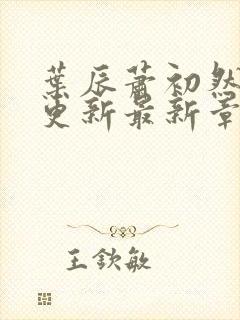 葉辰蕭初然
更新最新章
王欽敏